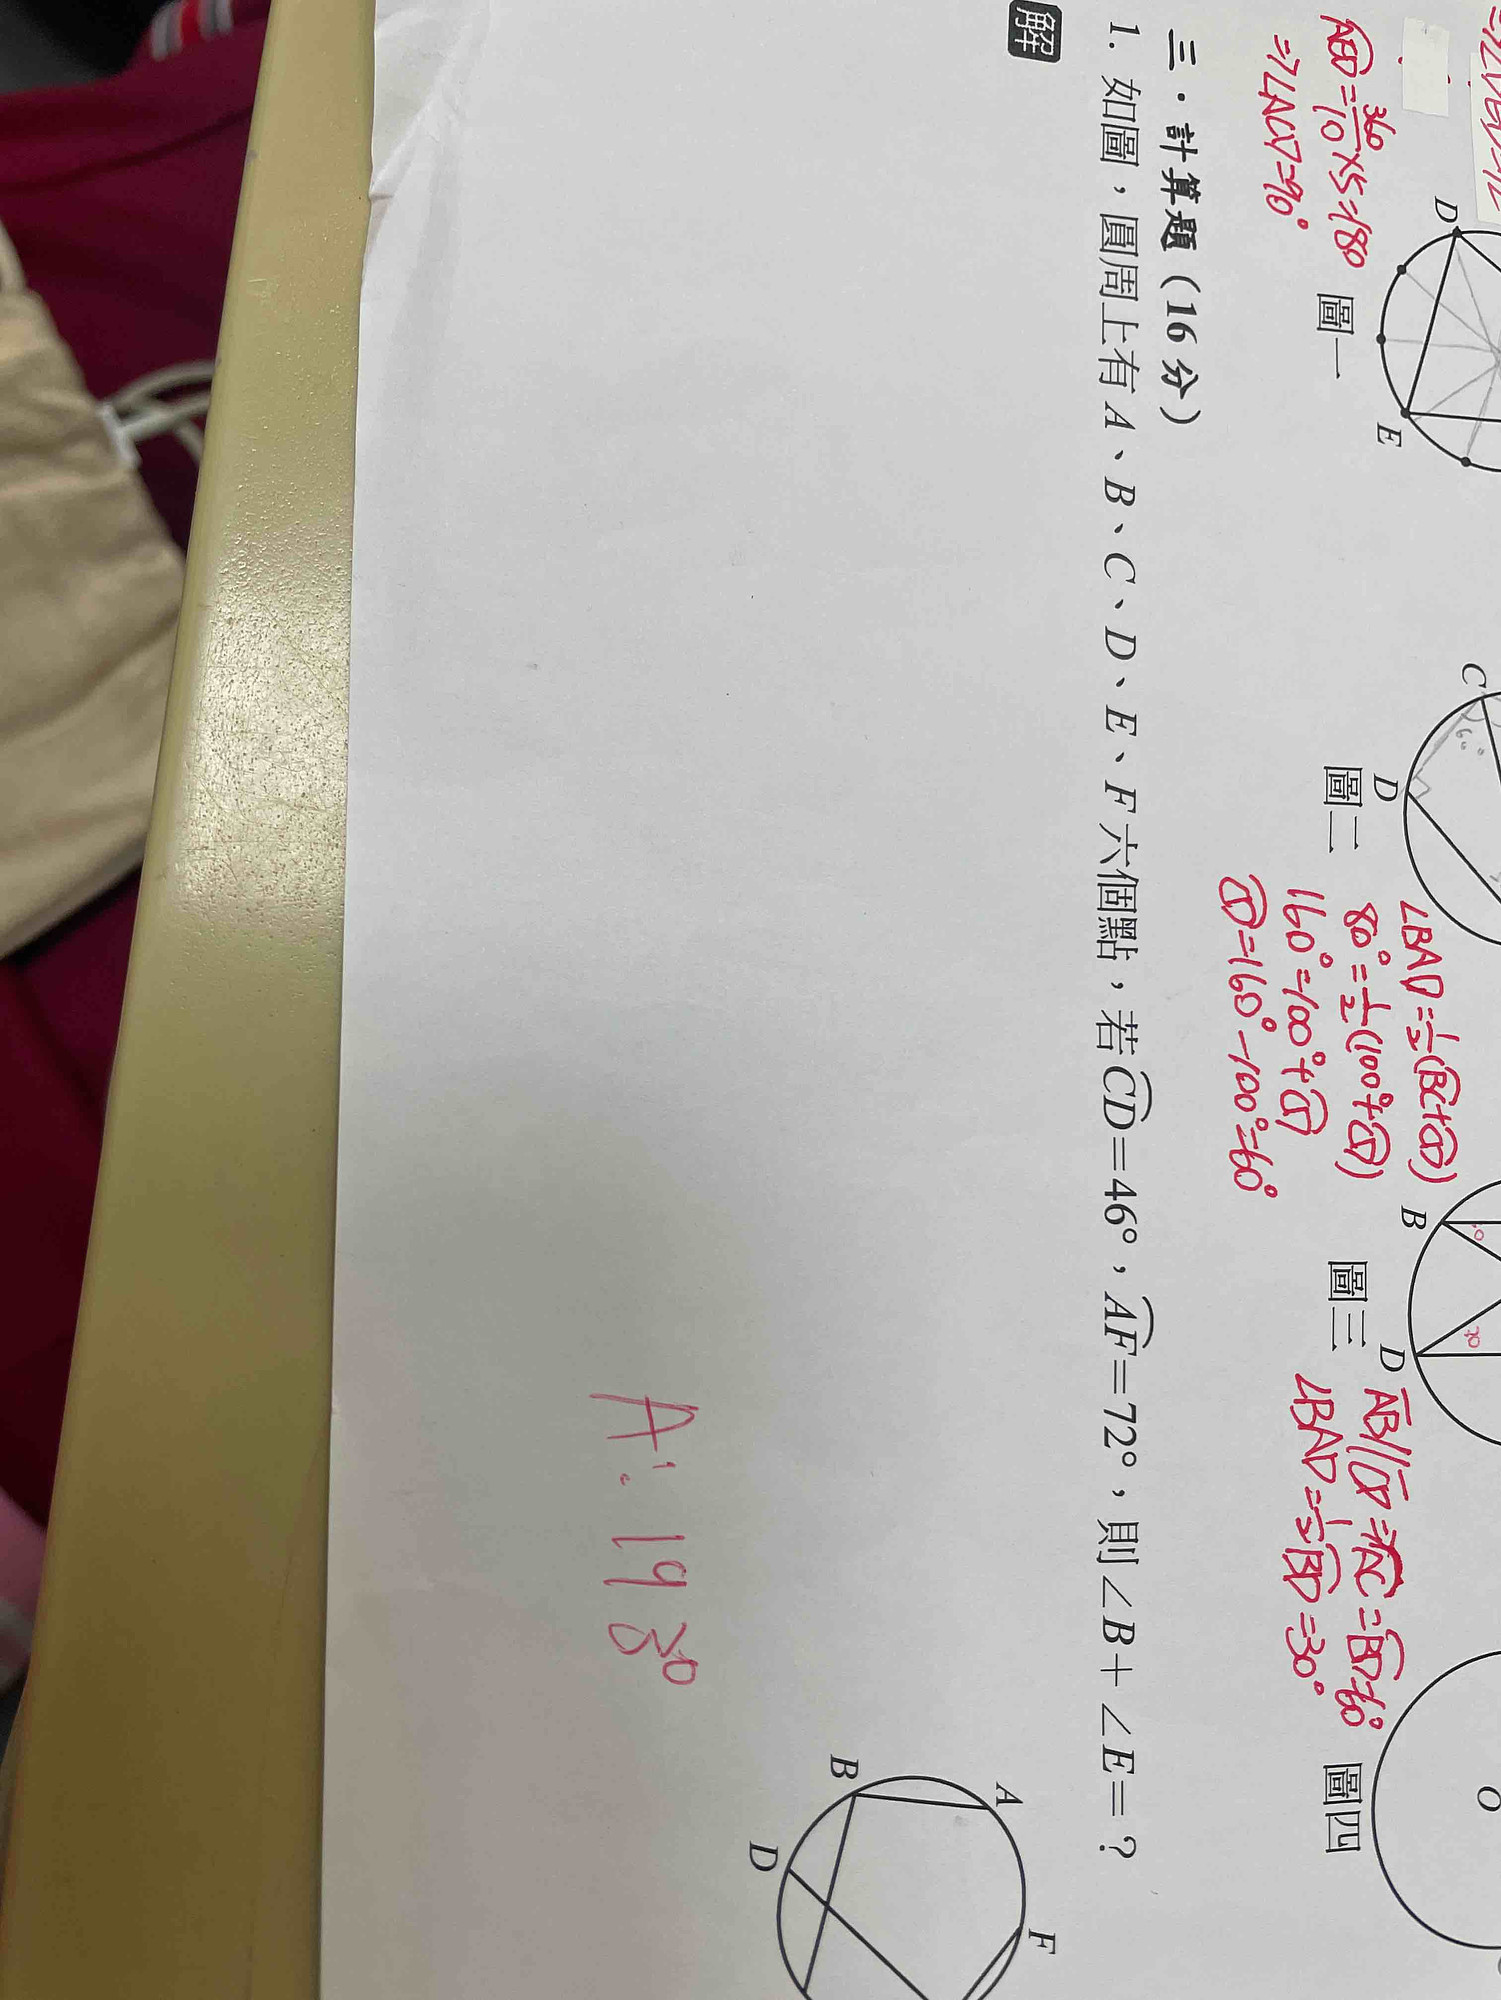 ⌒AED=360/10×5=180
⇒∠ACD=90°
D
E
圖一
C
60°
D
圖二
∠BAD=1/2(⌒BC+⌒CD)
80°=1/2(100°+⌒CD)
160°=100°+⌒CD
⌒CD=160°-100°=60°
B
D
圖三
AB//CD⇒⌒AC=⌒BD=60°
∠BAD=1/2⌒BD=30°
O
圖四
三·計算題(16分)
1. 如圖,圓周上有A、B、C、D、E、F六個點,若⌒CD=46°,⌒AF=72°,則∠B+∠E=?
解
A
B
D
F
A:198°